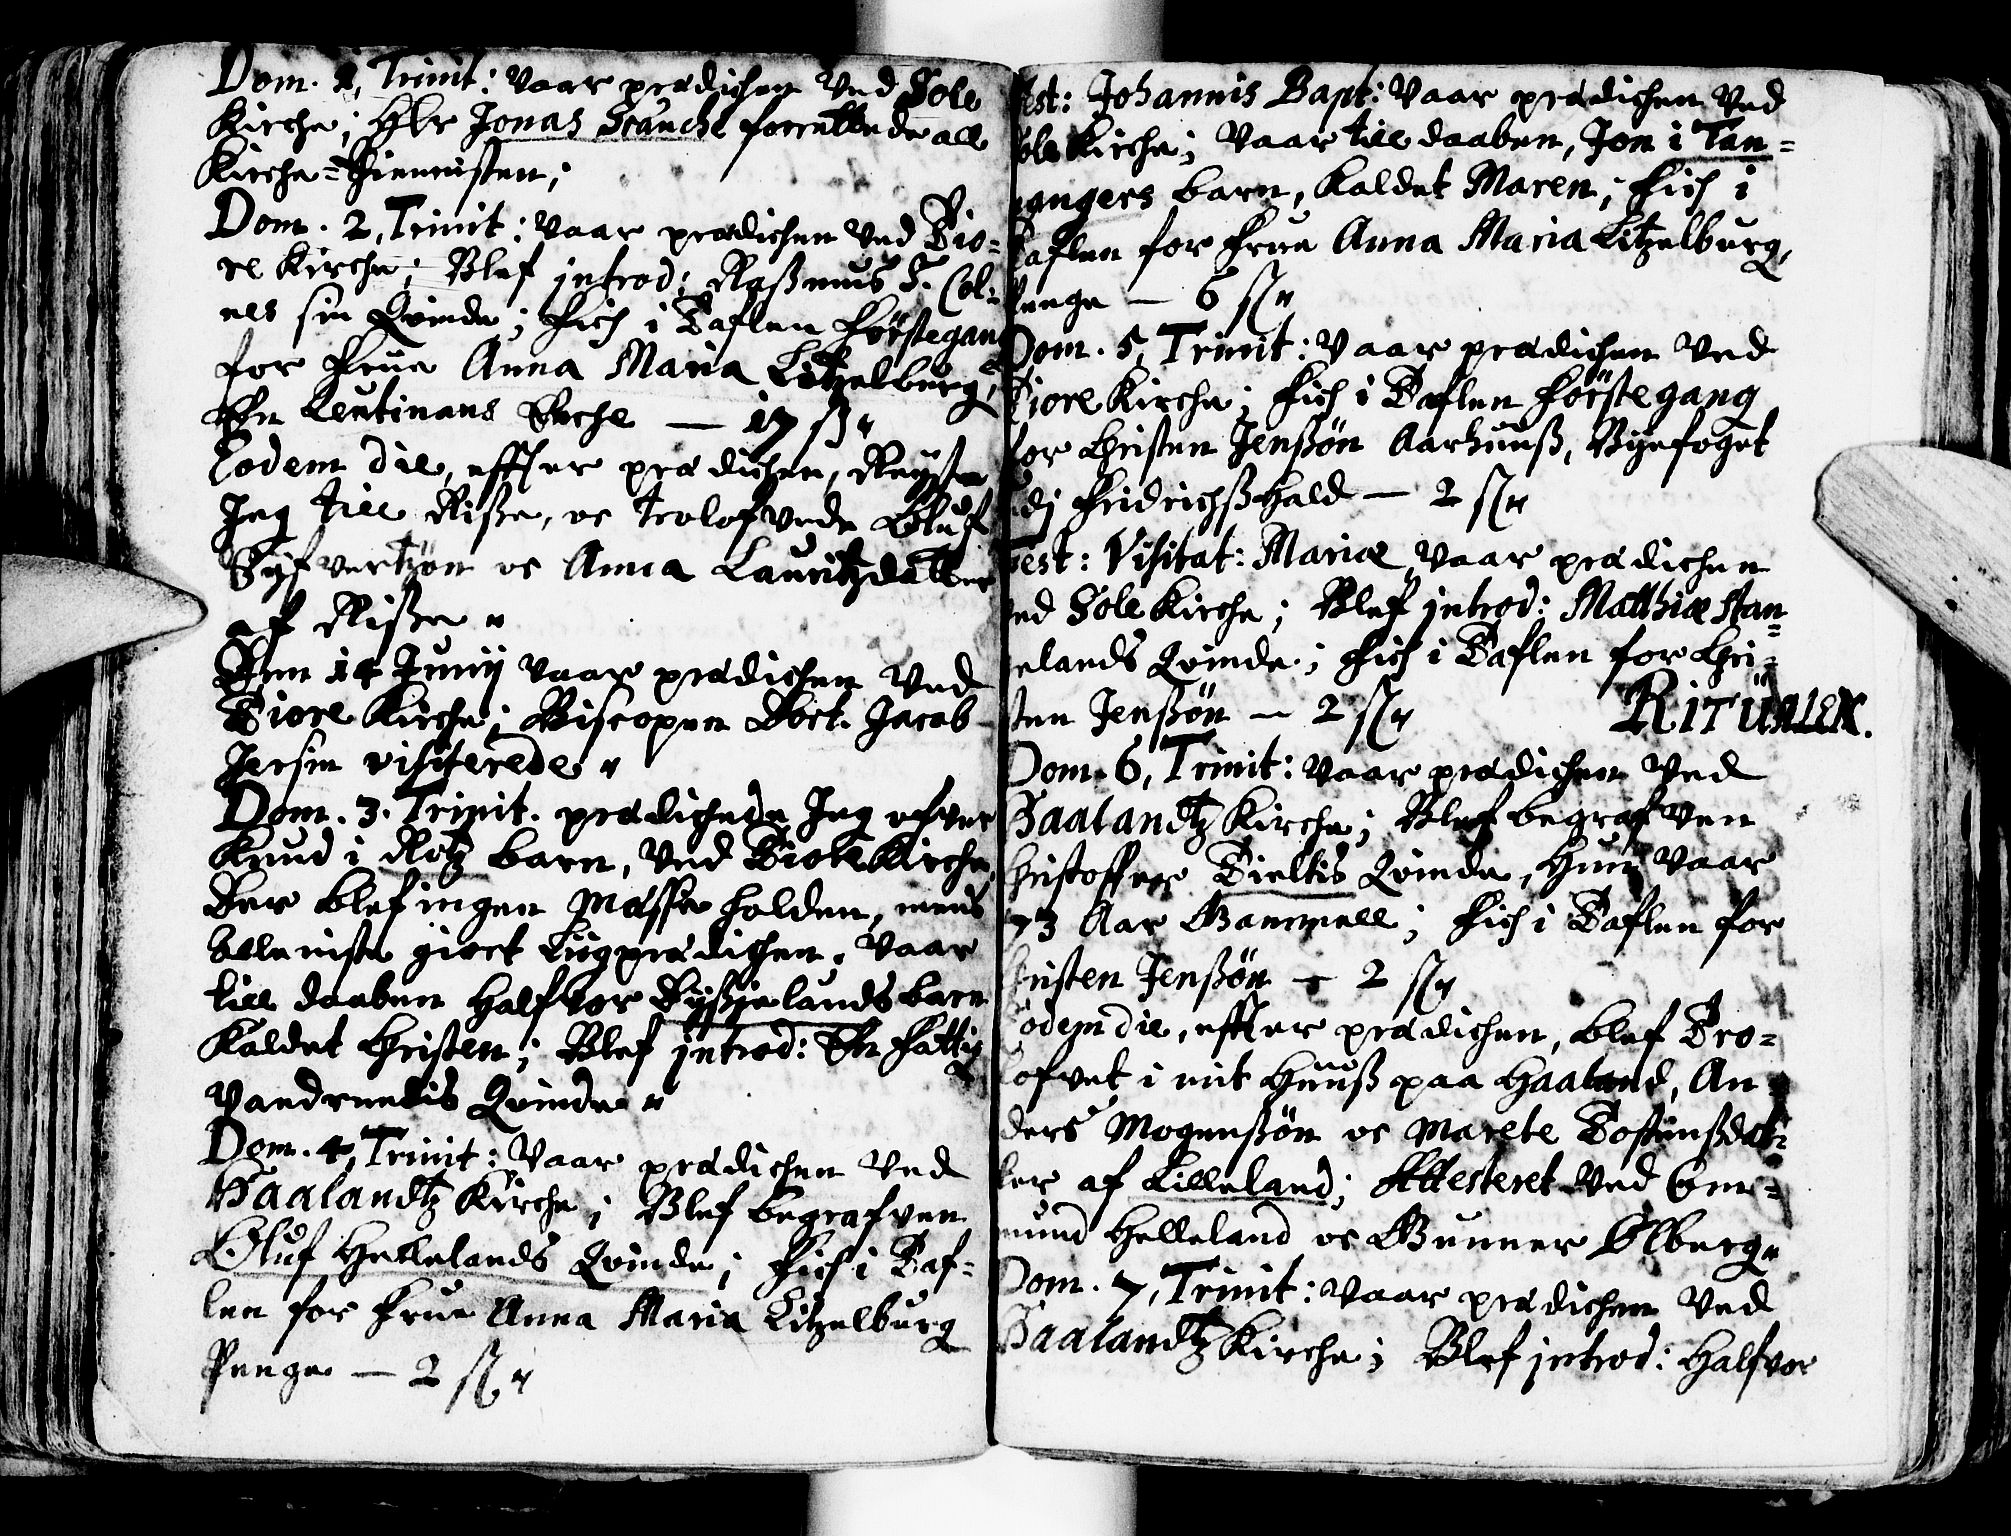 Dom. 1, Trinit: Vaar prædichen Ved Sole
Kirche; Hlr Jonas Scanche forrettede all
Kirche=thienisten;
Dom. 2, Trinit: Vaar prædichen Ved Tio=
re Kirche; Blef jntrod: Raßmus S. Col=
nes sin Qvinde; Fich i Taflen förstegang
for Frue Anna Maria Litzelburg,
En Leutinans Enche — 17 ß"
Eodem die, effter prædichen, Reyste
Jeg till Riße, oc trolofvede Oluf
Syfvertzøn oc Anna Lauritzdatter
af Riße "
Den 14 Junij vaar prædichen Ved
Tiore Kirche; Biscopen Doct. Jacob
Jersin visiterede "
Dom. 3. Trinit. prædichede Jeg ofver
Knud i Rötz barn, Ved Tiore Kirche,
Der blef ingen Messe holden, mens
alleniste giort Liigprædichen. Vaar
till daaben Halfvor Byßielands barn
Kaldet Christen; Blef jntrod: En Fattig
Vandrendis Qvinde "
Dom. 4, Trinit: Vaar prædichen Ved
Haalandtz Kirche; Blef begrafven
Oluf Hellelands Qvinde; Fich i Taf=
len for Frue Anna Maria Litzelburg
Penge — 2 ß "
Fest: Johannis Bapt: Vaar prædichen Ved
Sole Kirche; Vaar till daaben, Jon i Tan=
nangers barn, Kaldet Maren; Fich i
Taflen for Frue Anna Maria Litzelburg,
Penge — 6 ß "
Dom. 5, Trinit: Vaar prædichen Ved
Tiore Kirche; Fich i Taflen förstegang
for Christen Jenßön Aarhuuß, Byefoget
udj Fridrichßhald — 2 ß "
Fest: Visitat: Mariæ, Vaar prædichen
Ved Sole Kirche; Blef jntrod: Matthiæ Stan=
gelands Qvinde; Fich i Taflen for Chri=
sten Jenßön — 2 ß "
RITUALEN.
Dom. 6, Trinit: Vaar prædichen Ved
Haalandtz Kirche; Blef begrafven
Christoffer Tieltis Qvinde, Hun Vaar
73 Aar Gammell; Fich i Taflen for
Christen Jenßön — 2 ß "
Eodem die, effter prædichen, blef Tro=
lofvet i mit Huuß paa Haaland, An=
ders Mogenßön oc Marete Tostensdat=
ter af Lilleland; Attesteret Ved Om=
mund Helleland oc Gunner Ølberg "
Dom. 7, Trinit: Vaar prædichen Ved
Haalandtz Kirche; Blef jntrod: Halfvor